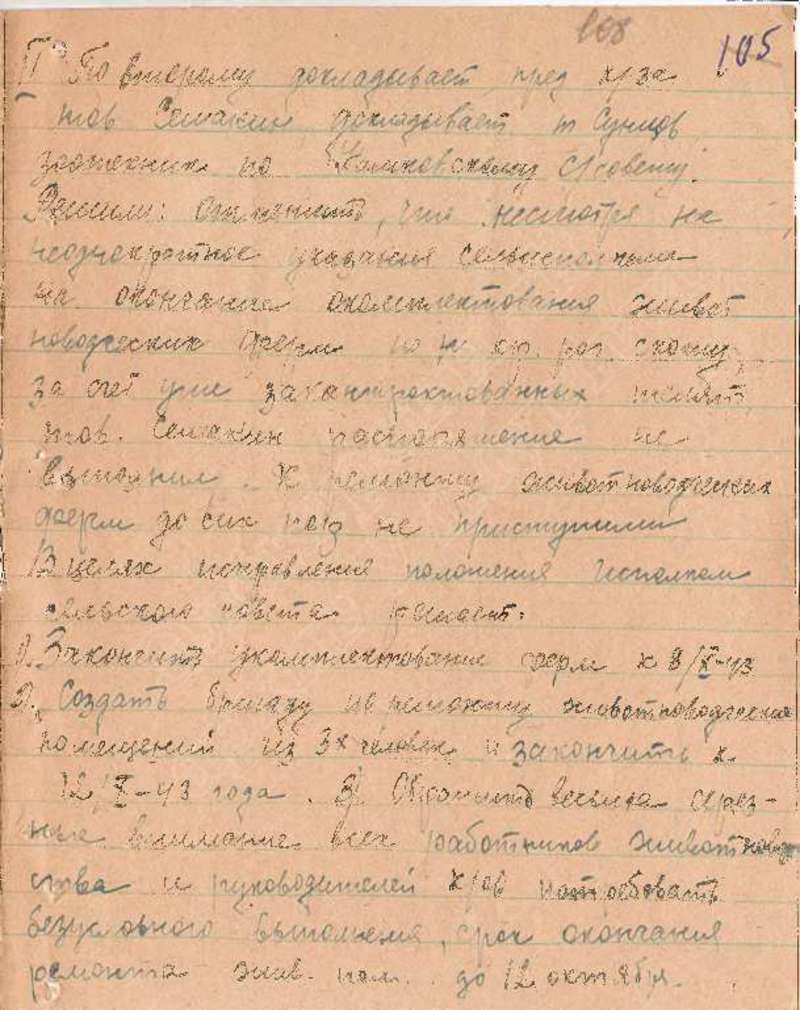 168
105
II По второму докладывает пред к/за
тов Семакин докладывает т Сунцов
зоотехник по с/совету.
Решили: отметить, что несмотря на
неоднократное указания сельисполкома
на окончание окомплектования живот
новодческих ферм по кр. рог. скоту
за счет уже законтрактованных телят
тов. Семакин распоряжение не
выполнил. К ремонту животноводческих
ферм до сих пор не приступили
В целях исправления положения исполком
сельского совета решает:
1. Закончить укомплектование ферм к 8/X-43
2. Создать бригаду по ремонту животноводческ
помещений из 3х человек и закончить к
12/X-43 года. 3) Обратить весьма серез-
ные внимание всех работников животновод
ства и руководителей к/зов потребовать
безусловного выполнения, срок окончания
ремонта жив. пом. до 12 октября.